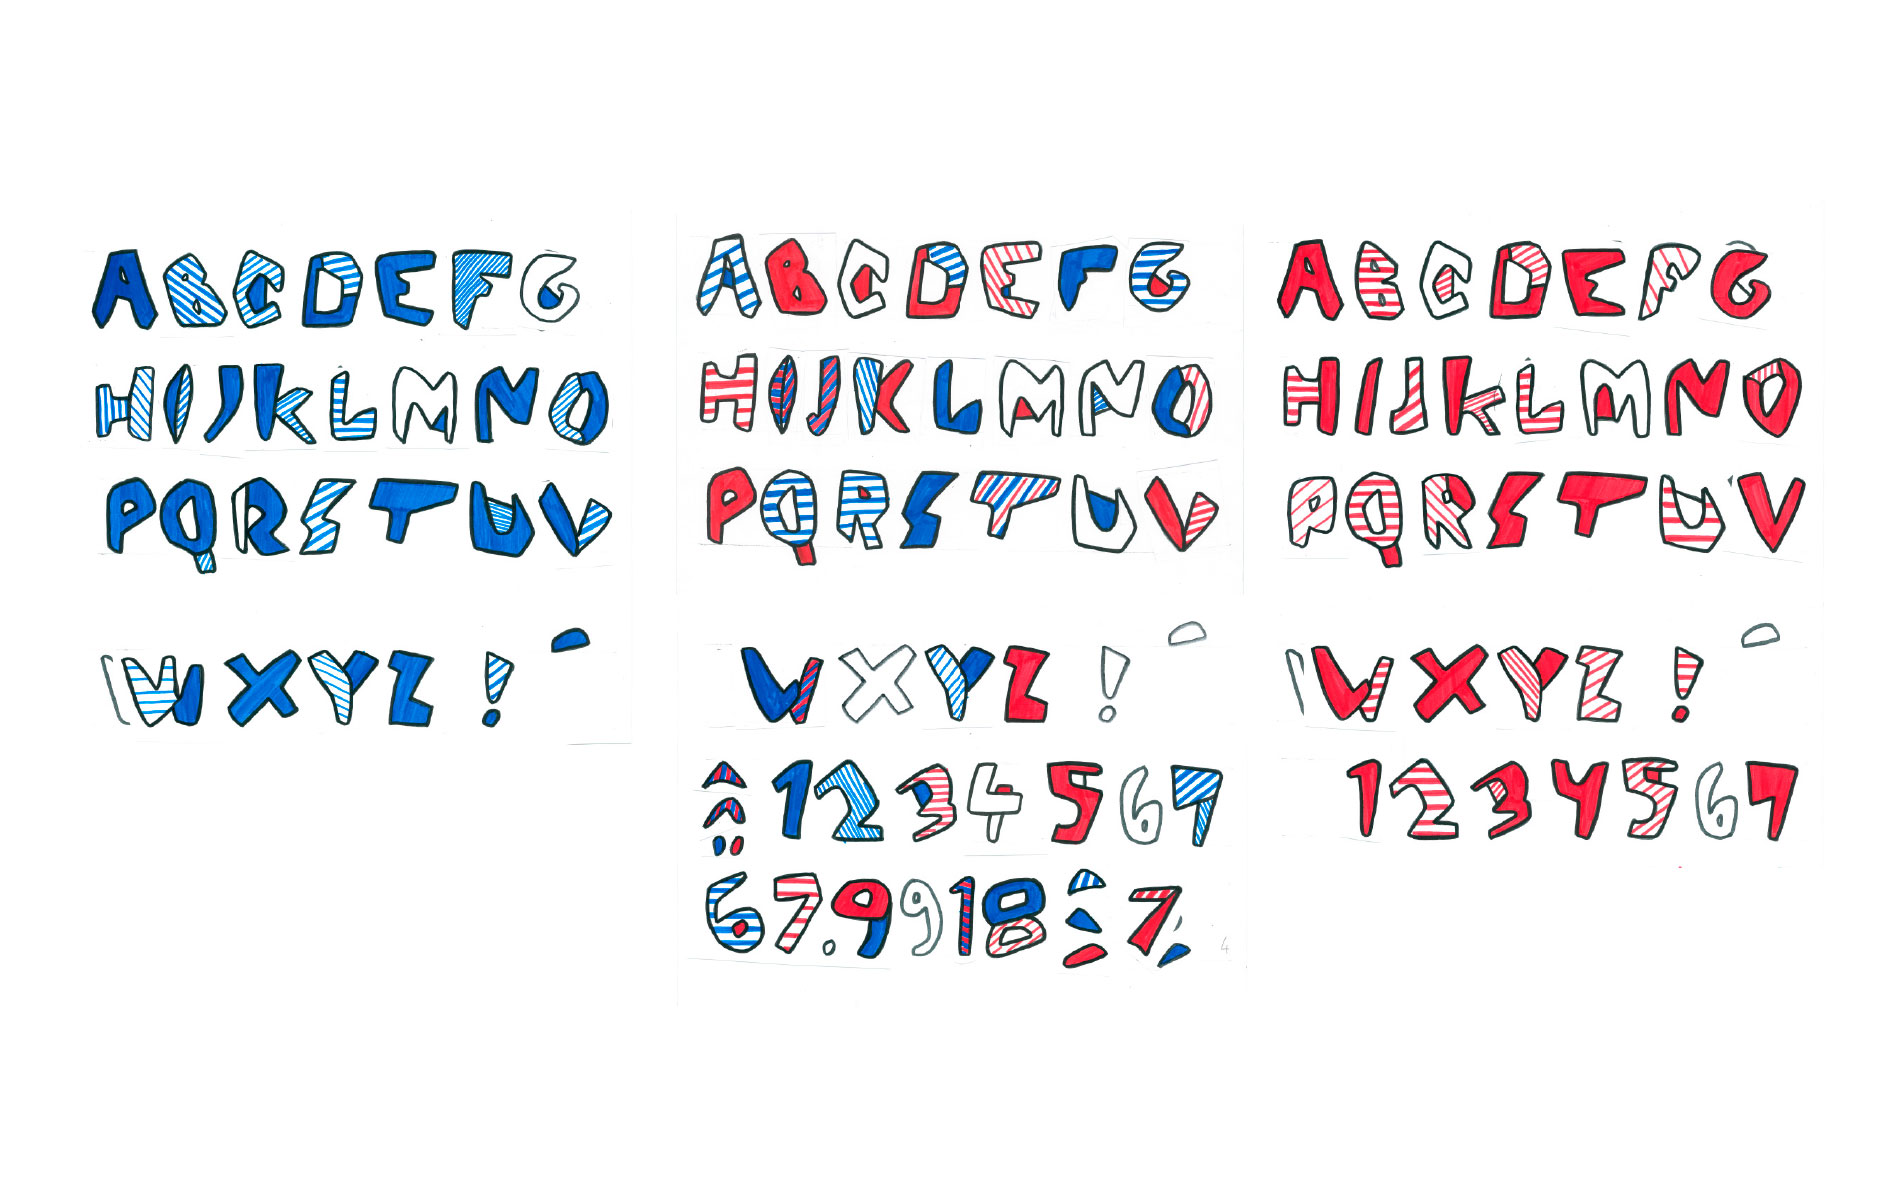 ABCDEFG
HIJKLMNO
PQRSTUV
WXYZ!
ABCDEFG
HIJKLMNO
PQRSTUV
WXYZ!
1234567
67.9918 7
4
ABCDEFG
HIJKLMNO
PQRSTUV
WXYZ!
1234567